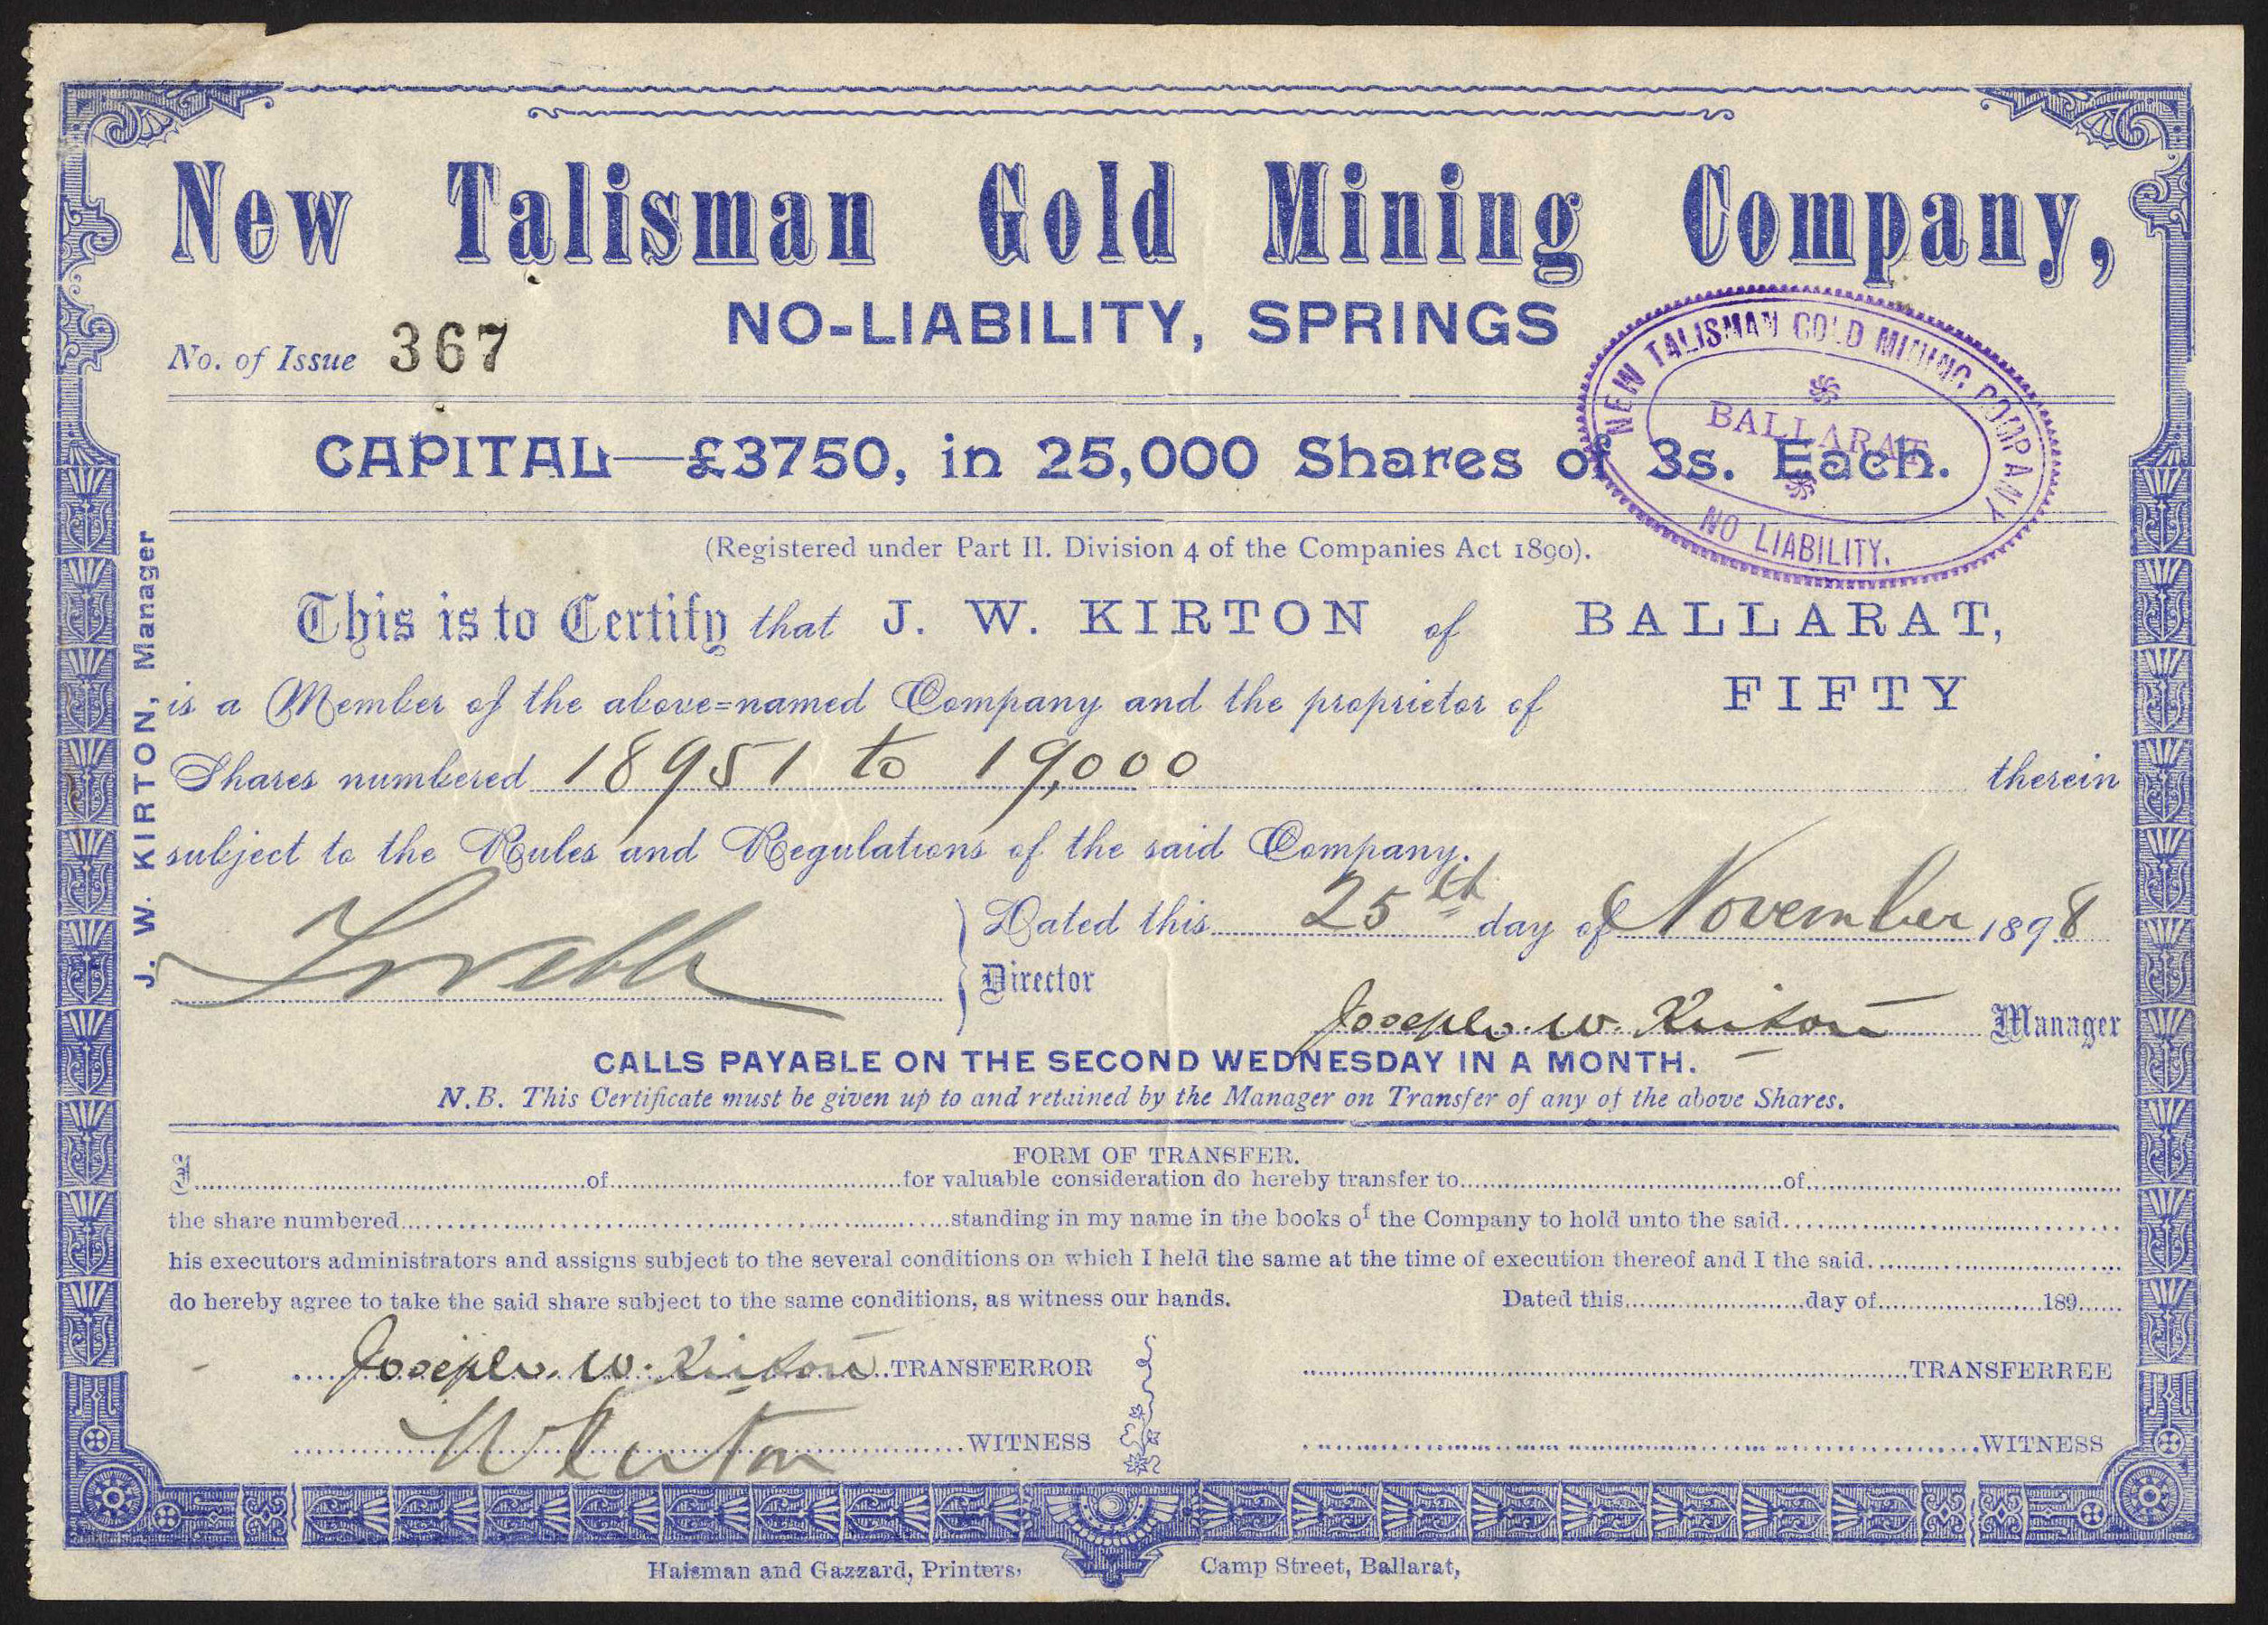 New Talisman Gold Mining Company,
NO-LIABILITY, SPRINGS
No. of Issue 367
NEW TALISMAN GOLD MINING COMPANY
BALLARAT
NO LIABILITY.
CAPITAL—£3750, in 25,000 Shares of 3s. Each.
(Registered under Part II. Division 4 of the Companies Act 1890).
J. W. KIRTON, Manager
This is to Certify that J. W. KIRTON of BALLARAT,
is a Member of the above=named Company and the proprietor of FIFTY
Shares numbered 18951 to 19,000 therein
subject to the Rules and Regulations of the said Company.
Dated this 25th day of November 1898
Director
Joseph W. Kirton Manager
CALLS PAYABLE ON THE SECOND WEDNESDAY IN A MONTH.
N.B. This Certificate must be given up to and retained by the Manager on Transfer of any of the above Shares.
FORM OF TRANSFER.
I of for valuable consideration do hereby transfer to of
the share numbered standing in my name in the books of the Company to hold unto the said
his executors administrators and assigns subject to the several conditions on which I held the same at the time of execution thereof and I the said
do hereby agree to take the said share subject to the same conditions, as witness our hands. Dated this day of 189
Joseph W. Kirton TRANSFERROR TRANSFERREE
WITNESS WITNESS
Haisman and Gazzard, Printers, Camp Street, Ballarat,